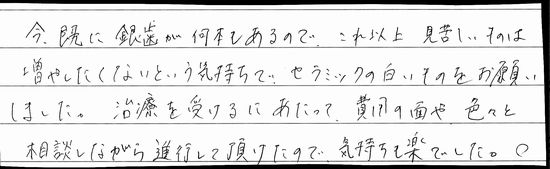 今、既に銀歯が何本もあるので、これ以上見苦しいものは
増やしたくないという気持ちで、セラミックの白いものをお願い
しました。治療を受けるにあたって、費用の面や、色々と
相談しながら進行して頂けたので、気持ちも楽でした。